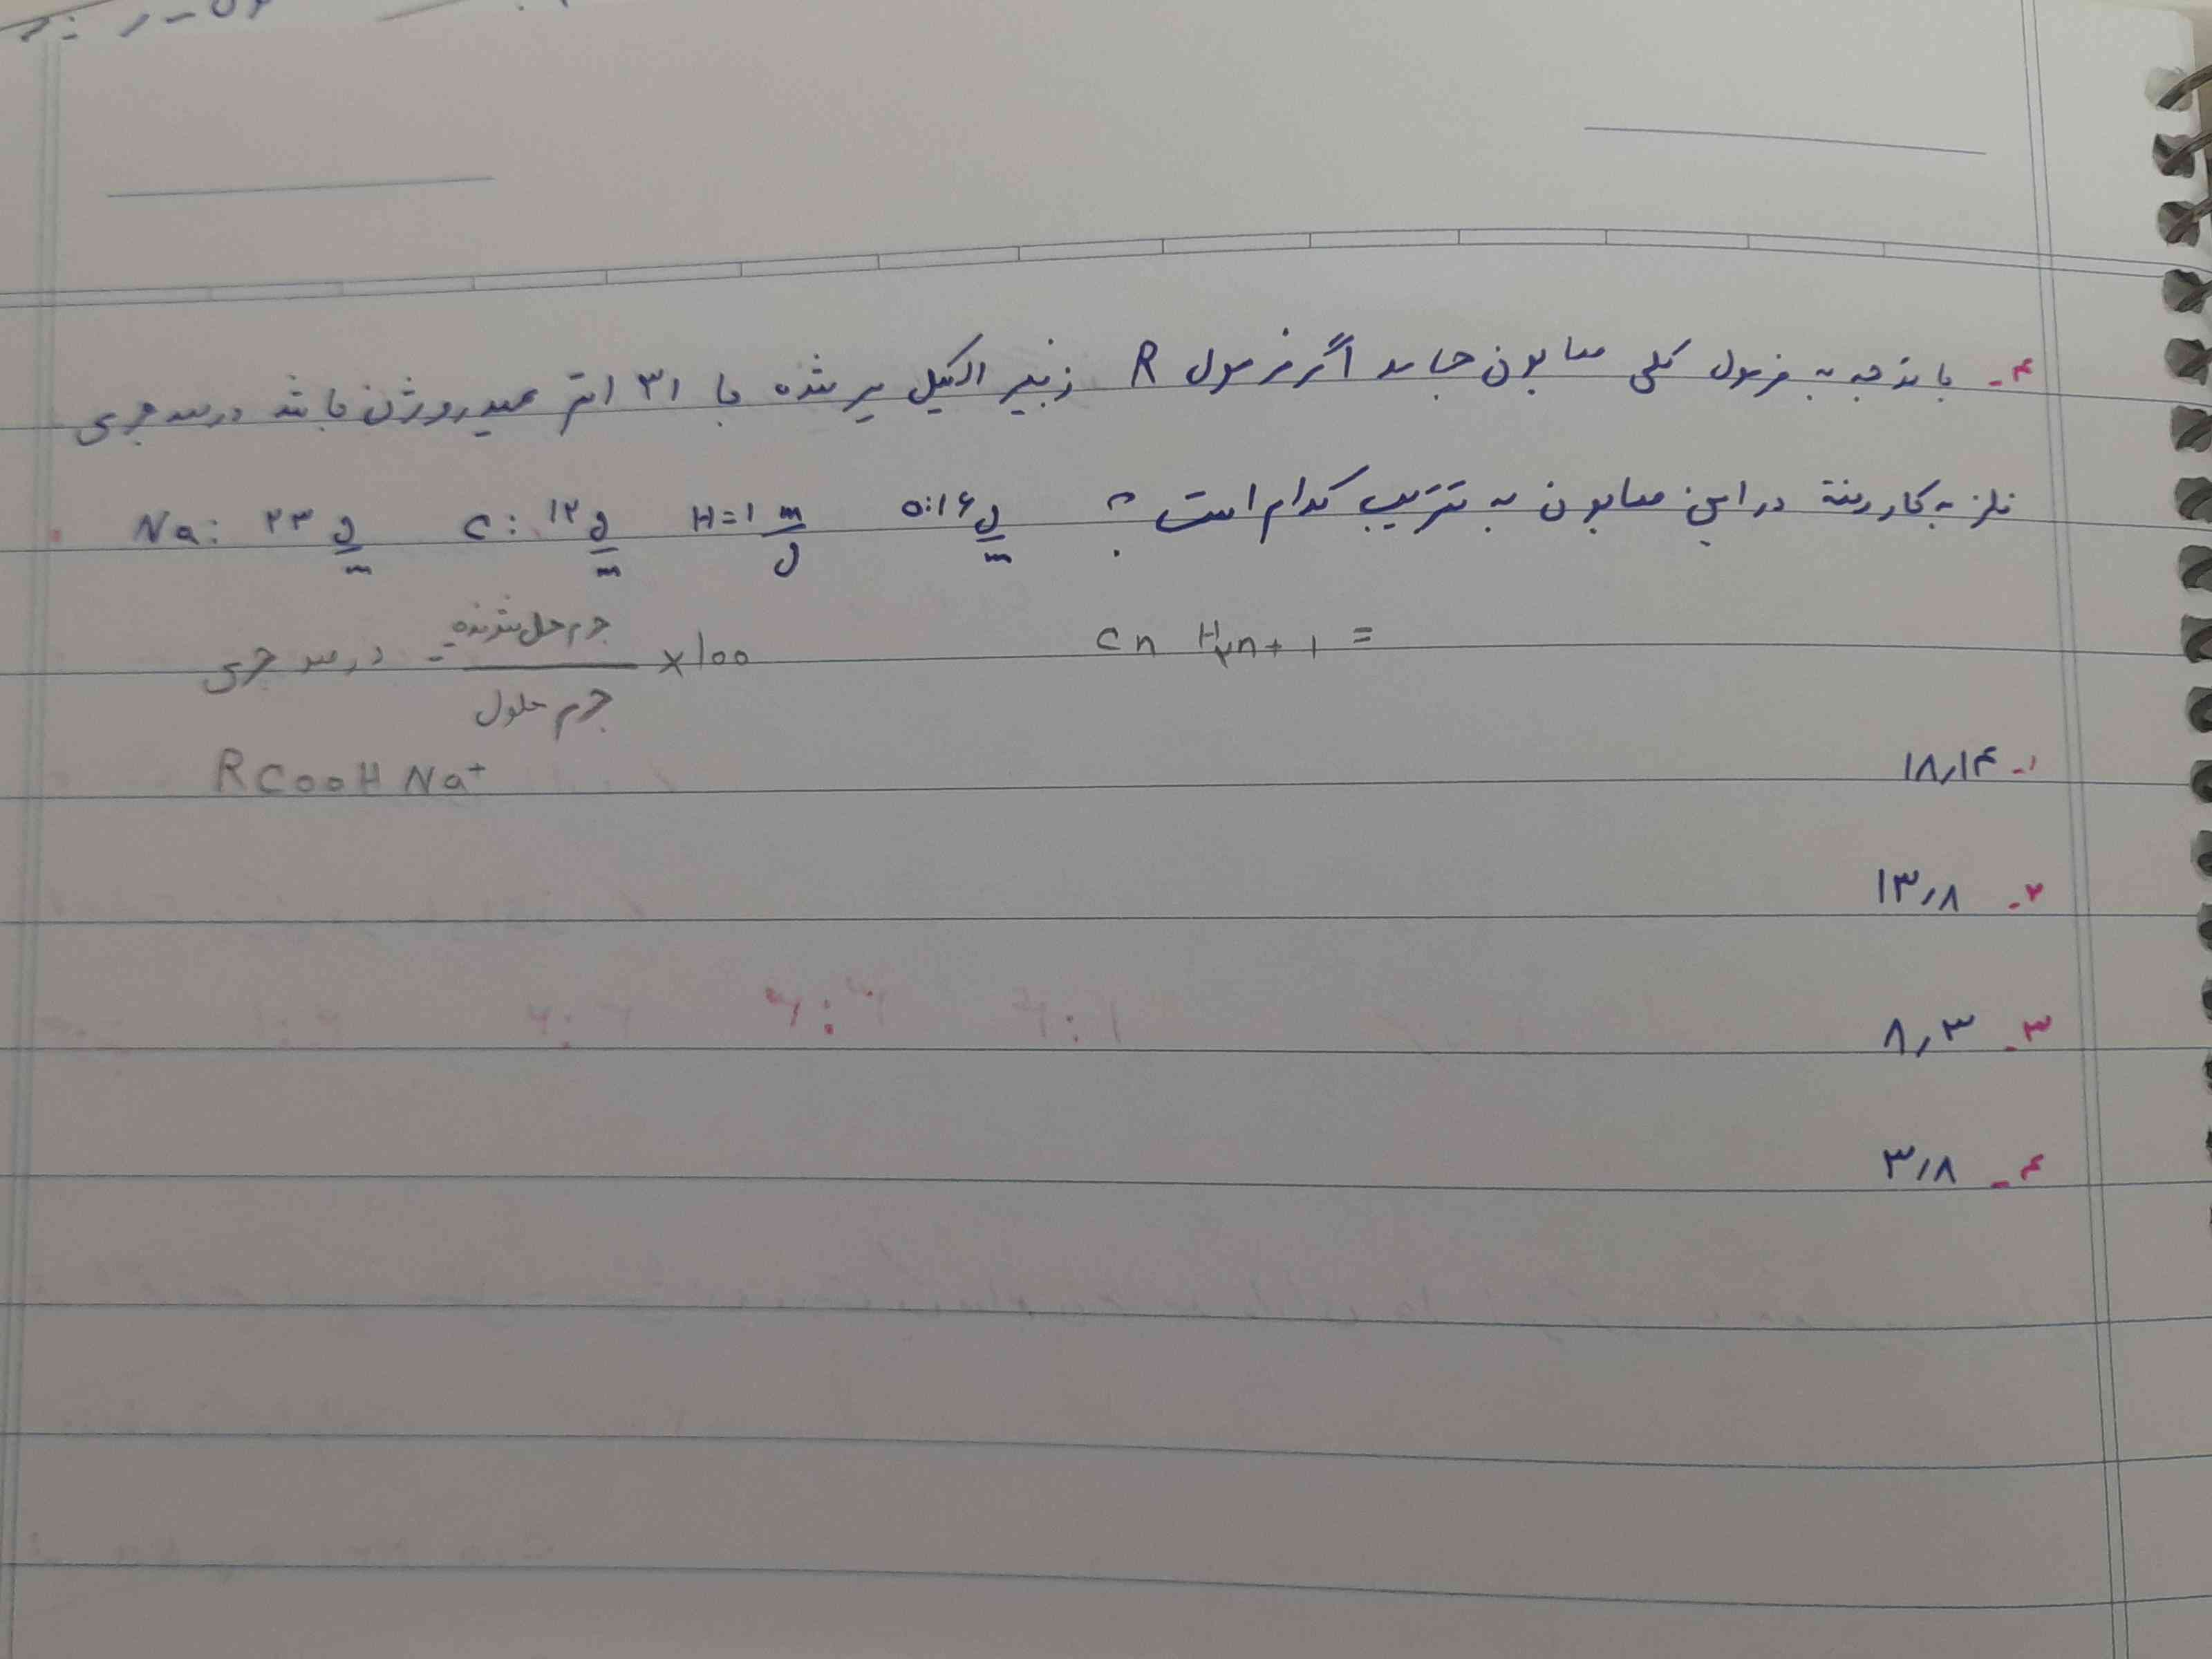 ۴- با توجه به فرمول کلی صابون جامد اگر فرمول R زنجیر الکیل سیر شده با ۳۱ اتم هیدروژن باشد درصد جرمی
فلز به کار رفته در این صابون به ترتیب کدام است؟ O:۱۶ g/m H=1 m/g C: ۱۲ g/m Na: ۲۳ g/m
CnH۲n+1 =
درصد جرمی = جرم حل شونده / جرم محلول ×100
RCooH Na+
۱- ۱۸,۱۴
۲- ۱۳,۸
۳- ۸,۳
۴- ۳,۸